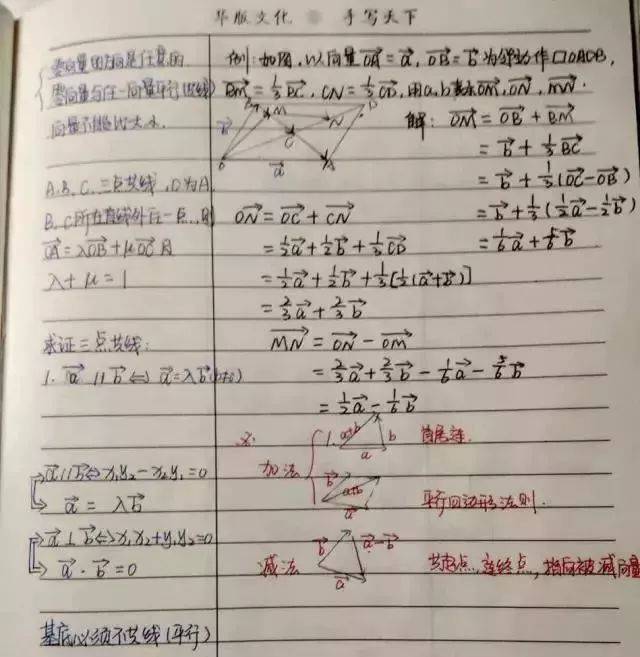 华版文化 手写天下
零向量的方向是任意的
零向量与任一向量平行(共线)
向量不能比大小
A、B、C三点共线,O为A、
B、C所在直线外任一点,则
OA=λOB+μOC 且
λ+μ=1
求证三点共线:
1. a∥b⇔a=λb(b≠0)
a∥b⇔x₁y₂-x₂y₁=0
a=λb
a⊥b⇔x₁x₂+y₁y₂=0
a·b=0
基底必须不共线(平行)
例:如图,以向量OA=a,OB=b为邻边作▱OADB,
BM=⅓BC,CN=⅓CD,用a,b表示OM,ON,MN.
B M D
N
b
C
O a A
解:OM=OB+BM
=b+⅓BC
=b+⅓(OC-OB)
=b+⅓(½a-½b)
=⅙a+⅚b
ON=OC+CN
=½a+½b+⅓CD
=½a+½b+⅓[½(a+b)]
=⅔a+⅔b
MN=ON-OM
=⅔a+⅔b-⅙a-⅚b
=½a-⅙b
※
加法
1. a+b b 首尾连
a
b
a+b 平行四边形法则.
a
减法 b a-b 共起点,连终点,指向被减向量
a